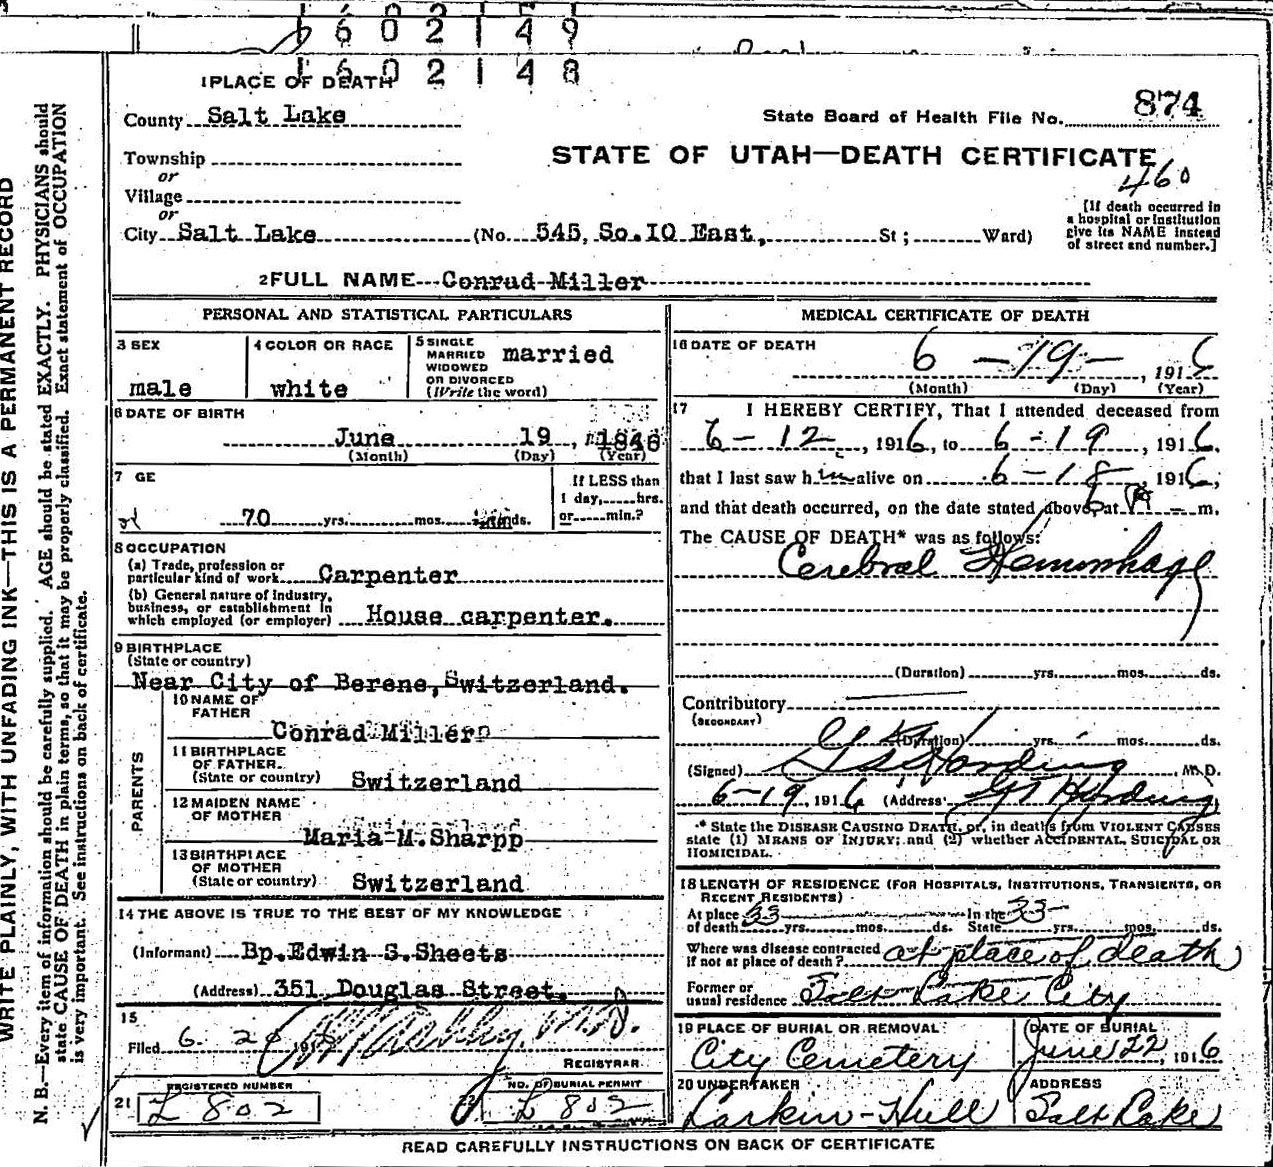 1602149
1602148
1 PLACE OF DEATH
County Salt Lake
State Board of Health File No. 874
Township
STATE OF UTAH—DEATH CERTIFICATE
or
460
Village
or
City Salt Lake (No. 545, So. 10 East, St ; Ward)
[If death occurred in
a hospital or institution
give its NAME instead
of street and number.]
2 FULL NAME Conrad Miller
PERSONAL AND STATISTICAL PARTICULARS
3 SEX
male
4 COLOR OR RACE
white
5 SINGLE
MARRIED
WIDOWED
OR DIVORCED
(Write the word)
married
6 DATE OF BIRTH
June 19, 1846
(Month) (Day) (Year)
7 GE
70 yrs. mos. ds.
If LESS than
1 day, hrs.
or min.?
8 OCCUPATION
(a) Trade, profession or
particular kind of work Carpenter
(b) General nature of industry,
business, or establishment in
which employed (or employer) House carpenter.
9 BIRTHPLACE
(State or country)
Near City of Berene, Switzerland.
PARENTS
10 NAME OF
FATHER
Conrad Miller
11 BIRTHPLACE
OF FATHER
(State or country) Switzerland
12 MAIDEN NAME
OF MOTHER
Maria M. Sharpp
13 BIRTHPLACE
OF MOTHER
(State or country) Switzerland
14 THE ABOVE IS TRUE TO THE BEST OF MY KNOWLEDGE
(Informant) Bp. Edwin S. Sheets
(Address) 351 Douglas Street.
15
Filed 6. 20 191 M.D.
REGISTRAR
REGISTERED NUMBER
21 L 802
NO. OF BURIAL PERMIT
L 802
MEDICAL CERTIFICATE OF DEATH
16 DATE OF DEATH
6 - 19 - , 1916
(Month) (Day) (Year)
17 I HEREBY CERTIFY, That I attended deceased from
6 - 12, 1916, to 6 - 19, 1916.
that I last saw him alive on 6 - 18, 1916,
and that death occurred, on the date stated above, at 6 A m.
The CAUSE OF DEATH* was as follows:
Cerebral Hemorrhage
(Duration) yrs. mos. ds.
Contributory
(SECONDARY)
(Duration) yrs. mos. ds.
(Signed) Harding, M.D.
6-19, 1916 (Address) Harding
* State the DISEASE CAUSING DEATH, or, in deaths from VIOLENT CAUSES
state (1) MEANS OF INJURY; and (2) whether ACCIDENTAL, SUICIDAL OR
HOMICIDAL.
18 LENGTH OF RESIDENCE (FOR HOSPITALS, INSTITUTIONS, TRANSIENTS, OR
RECENT RESIDENTS)
At place 33 In the 33
of death yrs. mos. ds. State yrs. mos. ds.
Where was disease contracted
if not at place of death? at place of death
Former or
usual residence Salt Lake City
19 PLACE OF BURIAL OR REMOVAL
City Cemetery
DATE OF BURIAL
June 22, 1916
20 UNDERTAKER
Larkin-Hull
ADDRESS
Salt Lake
READ CAREFULLY INSTRUCTIONS ON BACK OF CERTIFICATE
WRITE PLAINLY, WITH UNFADING INK—THIS IS A PERMANENT RECORD
N. B.—Every item of information should be carefully supplied. AGE should be stated EXACTLY. PHYSICIANS should
state CAUSE OF DEATH in plain terms, so that it may be properly classified. Exact statement of OCCUPATION
is very important. See instructions on back of certificate.